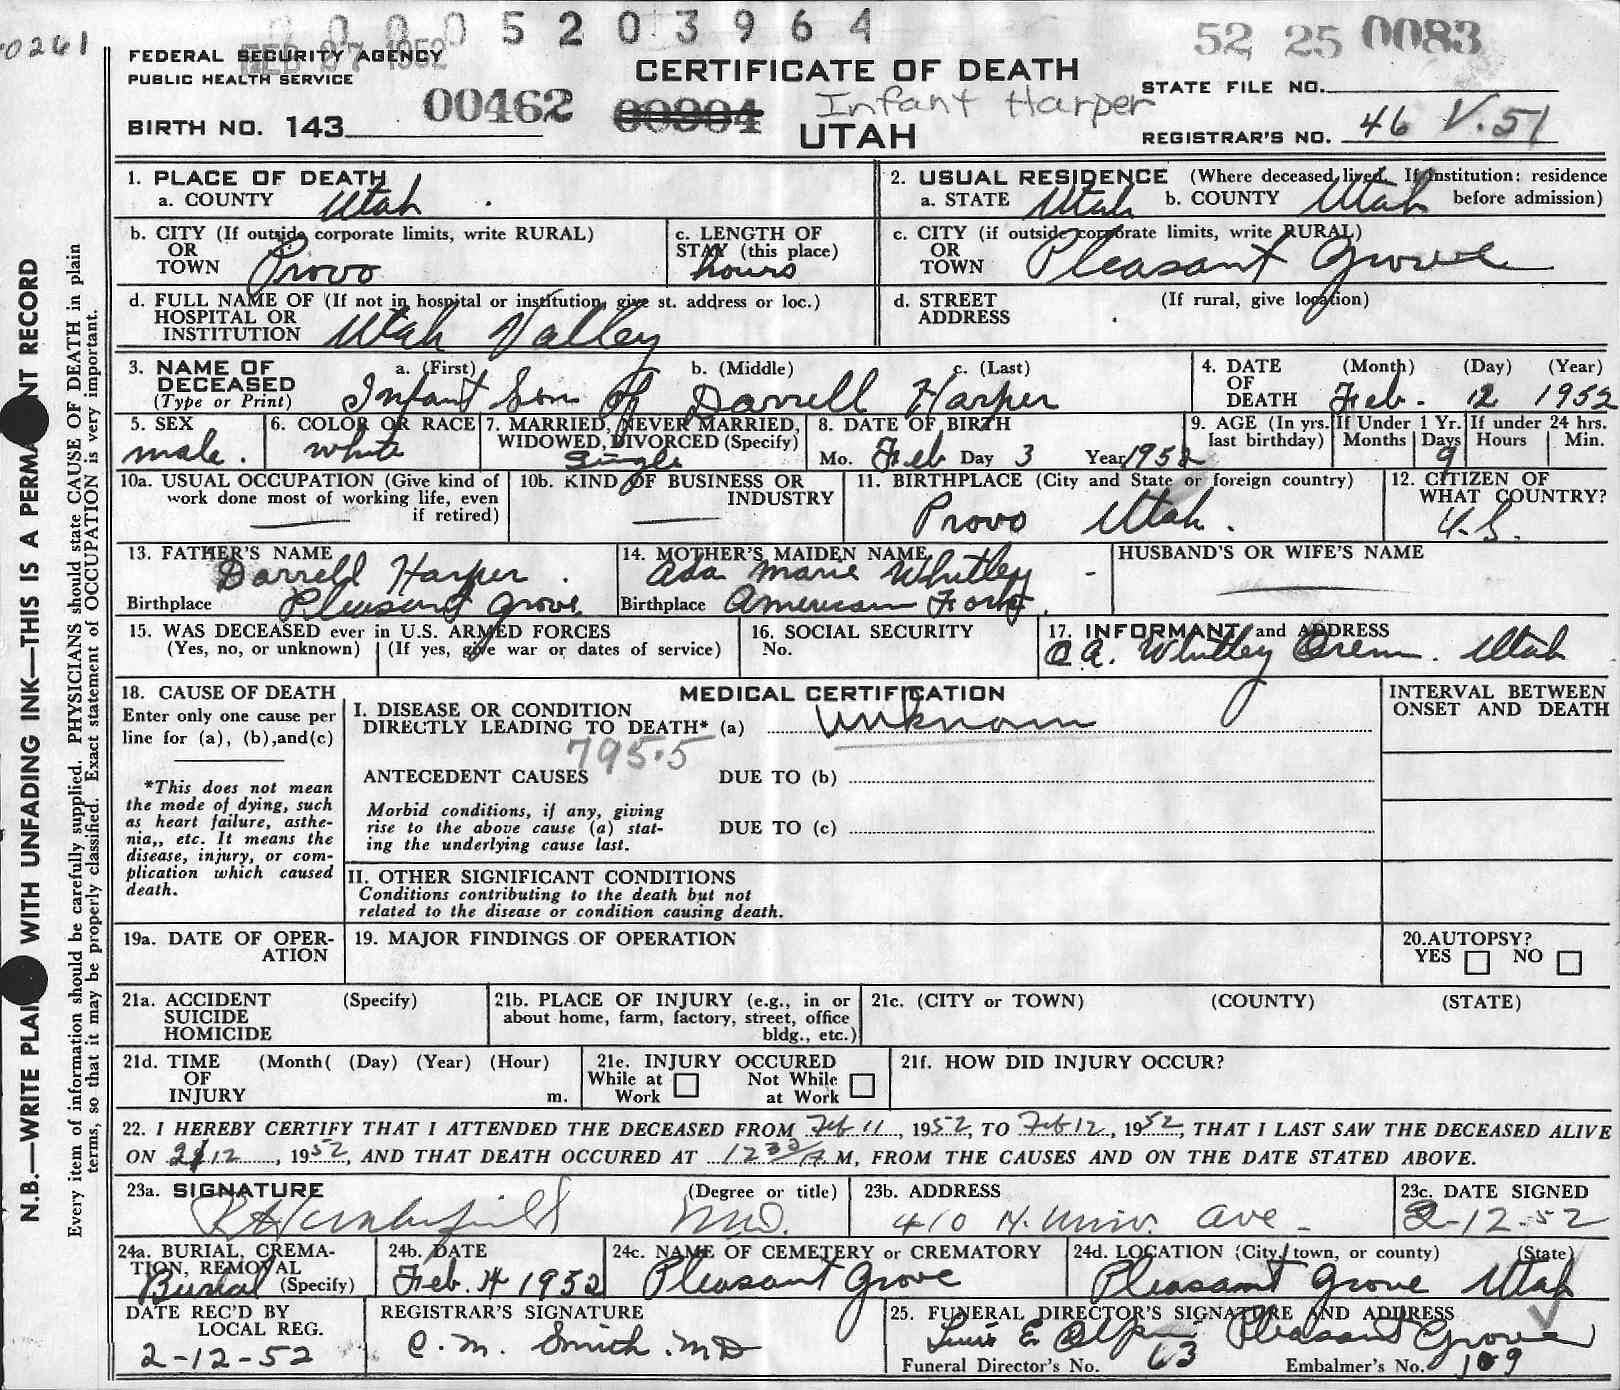 00005203964
52 25 0083
0261
FEDERAL SECURITY AGENCY
FEB 27 1952
PUBLIC HEALTH SERVICE
CERTIFICATE OF DEATH
STATE FILE NO.
00462
Infant Harper
BIRTH NO. 143
UTAH
REGISTRAR'S NO. 46 V.51
N.B.—WRITE PLAI WITH UNFADING INK—THIS IS A PERMA NT RECORD
Every item of information should be carefully supplied. PHYSICIANS should state CAUSE OF DEATH in plain
terms, so that it may be properly classified. Exact statement of OCCUPATION is very important.
1. PLACE OF DEATH
a. COUNTY Utah
2. USUAL RESIDENCE (Where deceased lived. If institution: residence
a. STATE Utah b. COUNTY Utah before admission)
b. CITY (If outside corporate limits, write RURAL)
OR
TOWN Provo
c. LENGTH OF
STAY (this place)
hours
c. CITY (if outside corporate limits, write RURAL)
OR
TOWN Pleasant Grove
d. FULL NAME OF (If not in hospital or institution, give st. address or loc.)
HOSPITAL OR
INSTITUTION Utah Valley
d. STREET (If rural, give location)
ADDRESS
3. NAME OF a. (First) b. (Middle) c. (Last)
DECEASED
(Type or Print) Infant Son of Darrell Harper
4. DATE (Month) (Day) (Year)
OF
DEATH Feb. 12 1952
5. SEX
male.
6. COLOR OR RACE
white
7. MARRIED, NEVER MARRIED,
WIDOWED, DIVORCED (Specify)
Single
8. DATE OF BIRTH
Mo. Feb Day 3 Year 1952
9. AGE (In yrs. If Under 1 Yr. If under 24 hrs.
last birthday) Months Days Hours Min.
9
10a. USUAL OCCUPATION (Give kind of
work done most of working life, even
if retired)
10b. KIND OF BUSINESS OR
INDUSTRY
11. BIRTHPLACE (City and State or foreign country)
Provo Utah.
12. CITIZEN OF
WHAT COUNTRY?
U.S.
13. FATHER'S NAME
Darrell Harper
Birthplace Pleasant Grove
14. MOTHER'S MAIDEN NAME
Ada Marie Whitley
Birthplace American Fork
HUSBAND'S OR WIFE'S NAME
15. WAS DECEASED ever in U.S. ARMED FORCES
(Yes, no, or unknown) (If yes, give war or dates of service)
16. SOCIAL SECURITY
No.
17. INFORMANT and ADDRESS
O.A. Whitley Orem. Utah
18. CAUSE OF DEATH
Enter only one cause per
line for (a), (b),and(c)
*This does not mean
the mode of dying, such
as heart failure, asthe-
nia,, etc. It means the
disease, injury, or com-
plication which caused
death.
MEDICAL CERTIFICATION
I. DISEASE OR CONDITION
DIRECTLY LEADING TO DEATH* (a) Unknown
795.5
ANTECEDENT CAUSES DUE TO (b)
Morbid conditions, if any, giving
rise to the above cause (a) stat-
ing the underlying cause last.
DUE TO (c)
II. OTHER SIGNIFICANT CONDITIONS
Conditions contributing to the death but not
related to the disease or condition causing death.
INTERVAL BETWEEN
ONSET AND DEATH
19a. DATE OF OPER-
ATION
19. MAJOR FINDINGS OF OPERATION
20.AUTOPSY?
YES NO
21a. ACCIDENT (Specify)
SUICIDE
HOMICIDE
21b. PLACE OF INJURY (e.g., in or
about home, farm, factory, street, office
bldg., etc.)
21c. (CITY or TOWN) (COUNTY) (STATE)
21d. TIME (Month( (Day) (Year) (Hour)
OF
INJURY m.
21e. INJURY OCCURED
While at Not While
Work at Work
21f. HOW DID INJURY OCCUR?
22. I HEREBY CERTIFY THAT I ATTENDED THE DECEASED FROM Feb 11, 1952, TO Feb 12, 1952, THAT I LAST SAW THE DECEASED ALIVE
ON 2/12, 1952, AND THAT DEATH OCCURED AT 12 30 A M, FROM THE CAUSES AND ON THE DATE STATED ABOVE.
23a. SIGNATURE (Degree or title)
M.D.
23b. ADDRESS
410 N. Univ. Ave.
23c. DATE SIGNED
2-12-52
24a. BURIAL, CREMA-
TION, REMOVAL
Burial (Specify)
24b. DATE
Feb. 14 1952
24c. NAME OF CEMETERY or CREMATORY
Pleasant Grove
24d. LOCATION (City, town, or county) (State)
Pleasant Grove Utah
DATE REC'D BY
LOCAL REG.
2-12-52
REGISTRAR'S SIGNATURE
C. M. Smith. MD
25. FUNERAL DIRECTOR'S SIGNATURE AND ADDRESS
E Pleasant Grove
Funeral Director's No. 63 Embalmer's No. 109